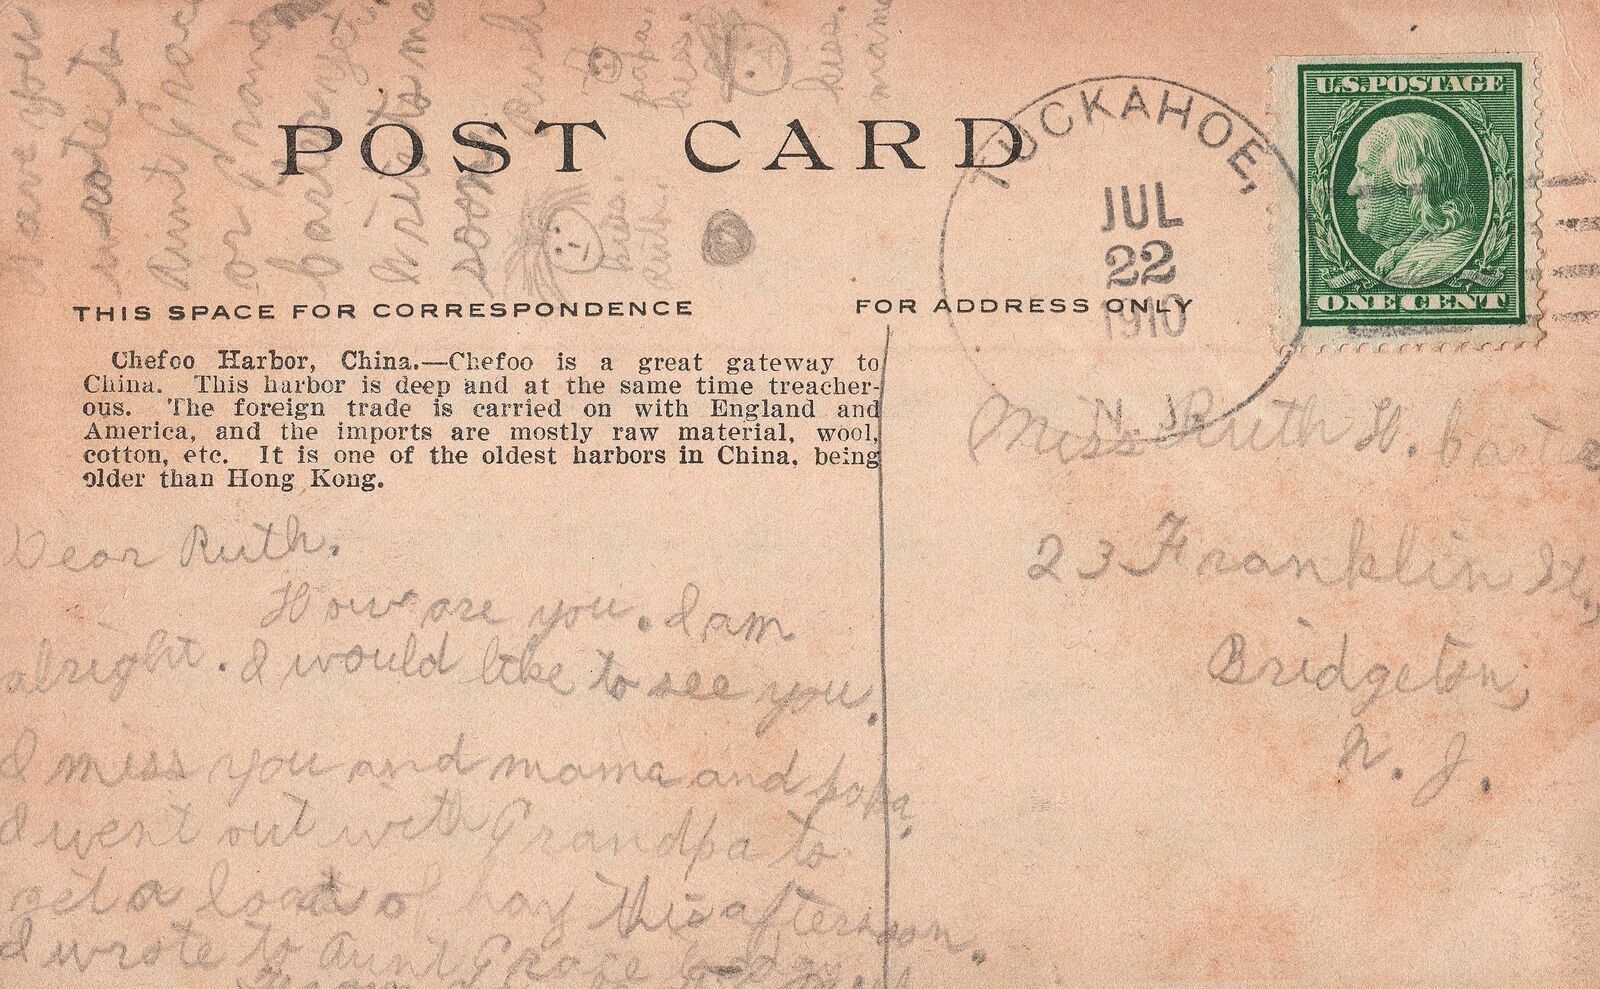 POST CARD
TUCKAHOE,
JUL
22
1910
N. J.
U.S. POSTAGE
ONE CENT
THIS SPACE FOR CORRESPONDENCE
FOR ADDRESS ONLY
Chefoo Harbor, China.—Chefoo is a great gateway to
China. This harbor is deep and at the same time treacher-
ous. The foreign trade is carried on with England and
America, and the imports are mostly raw material, wool,
cotton, etc. It is one of the oldest harbors in China, being
older than Hong Kong.
Dear Ruth.
How are you. I am
alright. I would like to see you.
I miss you and mama and papa.
I went out with Grandpa to
get a load of hay this afternoon.
I wrote to Aunt Grace today
have you
wrote to
Aunt Grace
or Grandma
Carter yet
Write to me
soon
Ruth
papa.
kiss.
kiss.
mama
kiss.
Ruth.
Miss Ruth H.
23 Franklin St,
Bridgeton,
N. J.